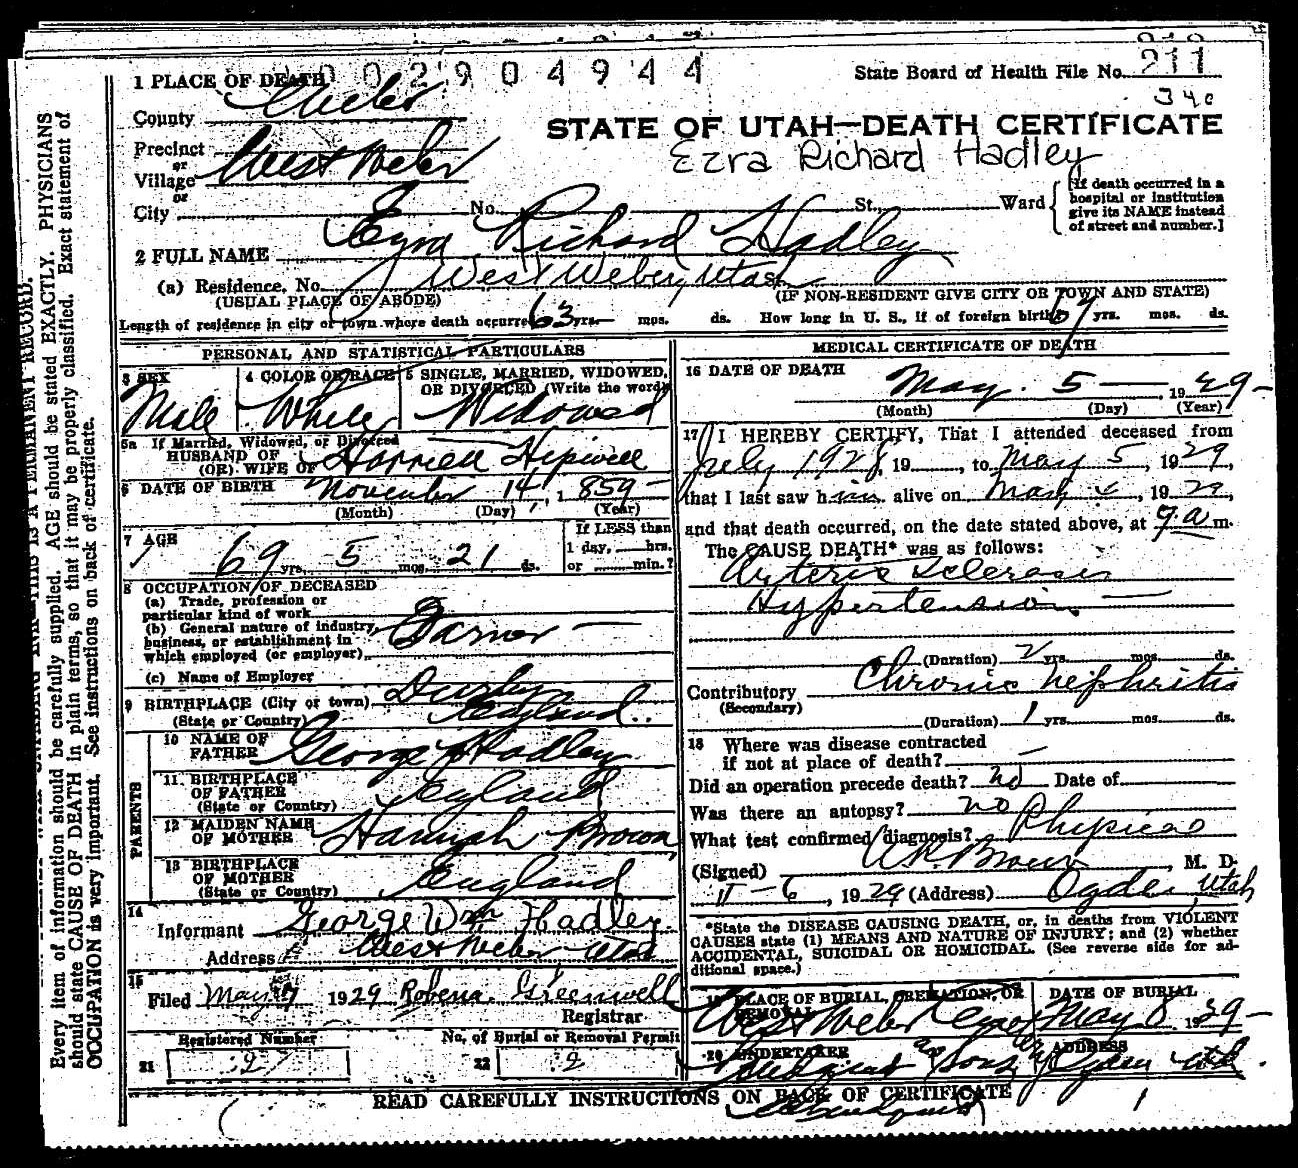 1 PLACE OF DEATH
002904944
State Board of Health File No. 211
County Weber
340
STATE OF UTAH—DEATH CERTIFICATE
Precinct
or
Village West Weber
or
Ezra Richard Hadley
City No. St. Ward
[If death occurred in a
hospital or institution
give its NAME instead
of street and number.]
2 FULL NAME Ezra Richard Hadley
(a) Residence, No. West Weber, Utah
(USUAL PLACE OF ABODE) (IF NON-RESIDENT GIVE CITY OR TOWN AND STATE)
Length of residence in city or town where death occurred 63 yrs. mos. ds. How long in U. S., if of foreign birth? yrs. mos. ds.
PERSONAL AND STATISTICAL PARTICULARS
3 SEX
Male
4 COLOR OR RACE
White
5 SINGLE, MARRIED, WIDOWED,
OR DIVORCED (Write the word)
Widowed
5a If Married, Widowed, or Divorced
HUSBAND OF
(OR) WIFE OF Harriett Hipwell
6 DATE OF BIRTH November 14, 1859
(Month) (Day) (Year)
7 AGE
69 yrs. 5 mos. 21 ds.
If LESS than
1 day, hrs.
or min.?
8 OCCUPATION OF DECEASED
(a) Trade, profession or
particular kind of work
(b) General nature of industry,
business, or establishment in
which employed (or employer)
Farmer
(c) Name of Employer
9 BIRTHPLACE (City or town)
(State or Country) England
PARENTS
10 NAME OF
FATHER George Hadley
11 BIRTHPLACE
OF FATHER
(State or Country) England
12 MAIDEN NAME
OF MOTHER Hannah Brown
13 BIRTHPLACE
OF MOTHER
(State or Country) England
14
Informant George Wm Hadley
Address West Weber Utah
15
Filed May 1929 Robena Greenwell
Registrar
Registered Number
21 2
No. of Burial or Removal Permit
22 2
MEDICAL CERTIFICATE OF DEATH
16 DATE OF DEATH
May 5 1929
(Month) (Day) (Year)
17 I HEREBY CERTIFY, That I attended deceased from
July 1928, 19, to May 5, 1929,
that I last saw him alive on May 4, 1929,
and that death occurred, on the date stated above, at 9 a m.
The CAUSE DEATH* was as follows:
Arterio Sclerosis
Hypertension
(Duration) 2 yrs. mos. ds.
Contributory Chronic Nephritis
(Secondary)
(Duration) 1 yrs. mos. ds.
18 Where was disease contracted
if not at place of death?
Did an operation precede death? no Date of
Was there an autopsy? no
What test confirmed diagnosis? Physical
(Signed) Brown, M. D.
6, 1929 (Address) Ogden, Utah
*State the DISEASE CAUSING DEATH, or, in deaths from VIOLENT
CAUSES state (1) MEANS AND NATURE OF INJURY; and (2) whether
ACCIDENTAL, SUICIDAL OR HOMICIDAL. (See reverse side for ad-
ditional space.)
19 PLACE OF BURIAL, CREMATION, OR
REMOVAL
West Weber
DATE OF BURIAL
May 8 1929
20 UNDERTAKER
and Sons
ADDRESS
Ogden Utah
READ CAREFULLY INSTRUCTIONS ON BACK OF CERTIFICATE
Every item of information should be carefully supplied. AGE should be stated EXACTLY. PHYSICIANS
should state CAUSE OF DEATH in plain terms, so that it may be properly classified. Exact statement of
OCCUPATION is very important. See instructions on back of certificate.